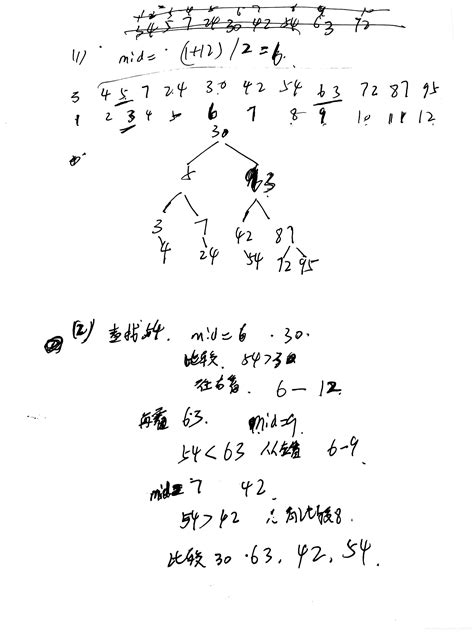 1 2 3 4 5 6 7 8 9
3 4 5 7 24 30 42 54 63 72
(1) mid = (1+12)/2=6.
3 4 5 7 24 30 42 54 63 72 87 95
1 2 3 4 5 6 7 8 9 10 11 12
30
5 63
3 7 42 87
4 24 54 72 95
(2) 查找54. mid=6 . 30.
比较. 54>30
往右看. 6—12
再看 63. mid=9.
54<63 6-9
mid=7 42.
54>42 比较8.
比较 30 . 63, 42, 54.